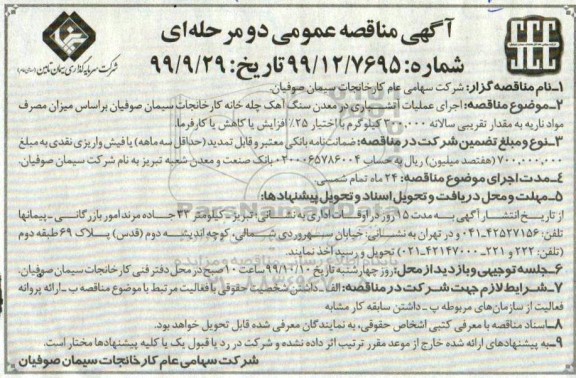 آگهی مناقصه عمومی دو مرحله‌ای
شماره: ۹۹/۱۲/۷۶۹۵ تاریخ: ۹۹/۹/۲۹
شرکت سرمایه گذاری سیمان تامین
۱-نام مناقصه گزار: شرکت سهامی عام کارخانجات سیمان صوفیان.
۲-موضوع مناقصه: اجرای عملیات آتشباری در معدن سنگ آهک چله خانه کارخانجات سیمان صوفیان بر اساس میزان مصرف
مواد ناریه به مقدار تقریبی سالانه ۳۰۰,۰۰۰ کیلوگرم با اختیار ۲۵٪ افزایش یا کاهش با کارفرما.
۳-نوع و مبلغ تضمین شرکت در مناقصه: ضمانت نامه بانکی معتبر و قابل تمدید (حداقل سه ماهه) یا فیش واریزی نقدی به مبلغ
۷۰۰,۰۰۰,۰۰۰ (هفتصد میلیون) ریال به حساب ۰۲۰۰۰۶۵۷۸۶۰۰۴ بانک صنعت و معدن شعبه تبریز به نام شرکت سیمان صوفیان.
۴-مدت اجرای موضوع مناقصه: ۲۴ ماه تمام شمسی
۵-مهلت و محل دریافت و تحویل اسناد و تحویل پیشنهادها:
از تاریخ انتشار آگهی به مدت ۱۵ روز در اوقات اداری به نشانی: تبریز-کیلومتر ۳۳ جاده مرند امور بازرگانی-پیمانها
تلفن: ۴۲۵۲۷۱۵۶-۰۴۱ و در تهران به نشانی: خیابان سهروردی شمالی، کوچه اندیشه دوم (قدس) پلاک ۶۹ طبقه دوم
(تلفن: ۲۲۲ و ۲۲۱-۴۲۱۴۷۰۰۰-۰۲۱) تحویل و رسید أخذ نمایند.
۶-جلسه توجیهی و بازدید از محل: روز چهارشنبه تاریخ ۹۹/۱۰/۱۰ ساعت ۱۰ صبح در محل دفتر فنی کارخانجات سیمان صوفیان.
۷-شرایط لازم جهت شرکت در مناقصه: الف-داشتن شخصیت حقوقی با فعالیت مرتبط با موضوع مناقصه ب-ارائه پروانه
فعالیت از سازمان‌های مربوطه پ-داشتن سابقه کار مشابه
۸-اسناد مناقصه با معرفی کتبی اشخاص حقوقی، به نمایندگان معرفی شده قابل تحویل خواهد بود.
۹-به پیشنهادهای ارائه شده خارج از موعد مقرر ترتیب اثر داده نشده و شرکت در رد یا قبول یک یا کلیه پیشنهادها مختار است.
شرکت سهامی عام کارخانجات سیمان صوفیان